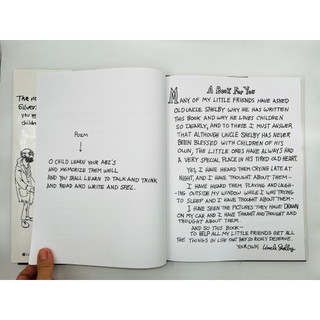 The
Silver
you
children
POEM
O CHILD LEARN YOUR ABZ'S
AND MEMORIZE THEM WELL
AND YOU SHALL LEARN TO TALK AND THINK
AND READ AND WRITE AND SPEL.
A Book For You
MANY OF MY LITTLE FRIENDS HAVE ASKED
OLD UNCLE SHELBY WHY HE HAS WRITTEN
THIS BOOK AND WHY HE LOVES CHILDREN
SO DEARLY, AND TO THESE I MUST ANSWER
THAT ALTHOUGH UNCLE SHELBY HAS NEVER
BEEN BLESSED WITH CHILDREN OF HIS
OWN, THE LITTLE ONES HAVE ALWAYS HAD
A VERY SPECIAL PLACE IN HIS TIRED OLD HEART.
YES, I HAVE HEARD THEM CRYING LATE AT
NIGHT, AND I HAVE THOUGHT ABOUT THEM—
I HAVE HEARD THEM PLAYING AND LAUGH-
ING OUTSIDE MY WINDOW WHILE I WAS TRYING
TO SLEEP AND I HAVE THOUGHT ABOUT THEM—
I HAVE SEEN THE PICTURES THEY HAVE DRAWN
ON MY CAR AND I HAVE THOUGHT AND THOUGHT AND
THOUGHT ABOUT THEM.
AND SO THIS BOOK—
TO HELP ALL MY LITTLE FRIENDS GET ALL
THE THINGS IN LIFE THAT THEY SO RICHLY DESERVE.
YOUR OWN, Uncle Shelby